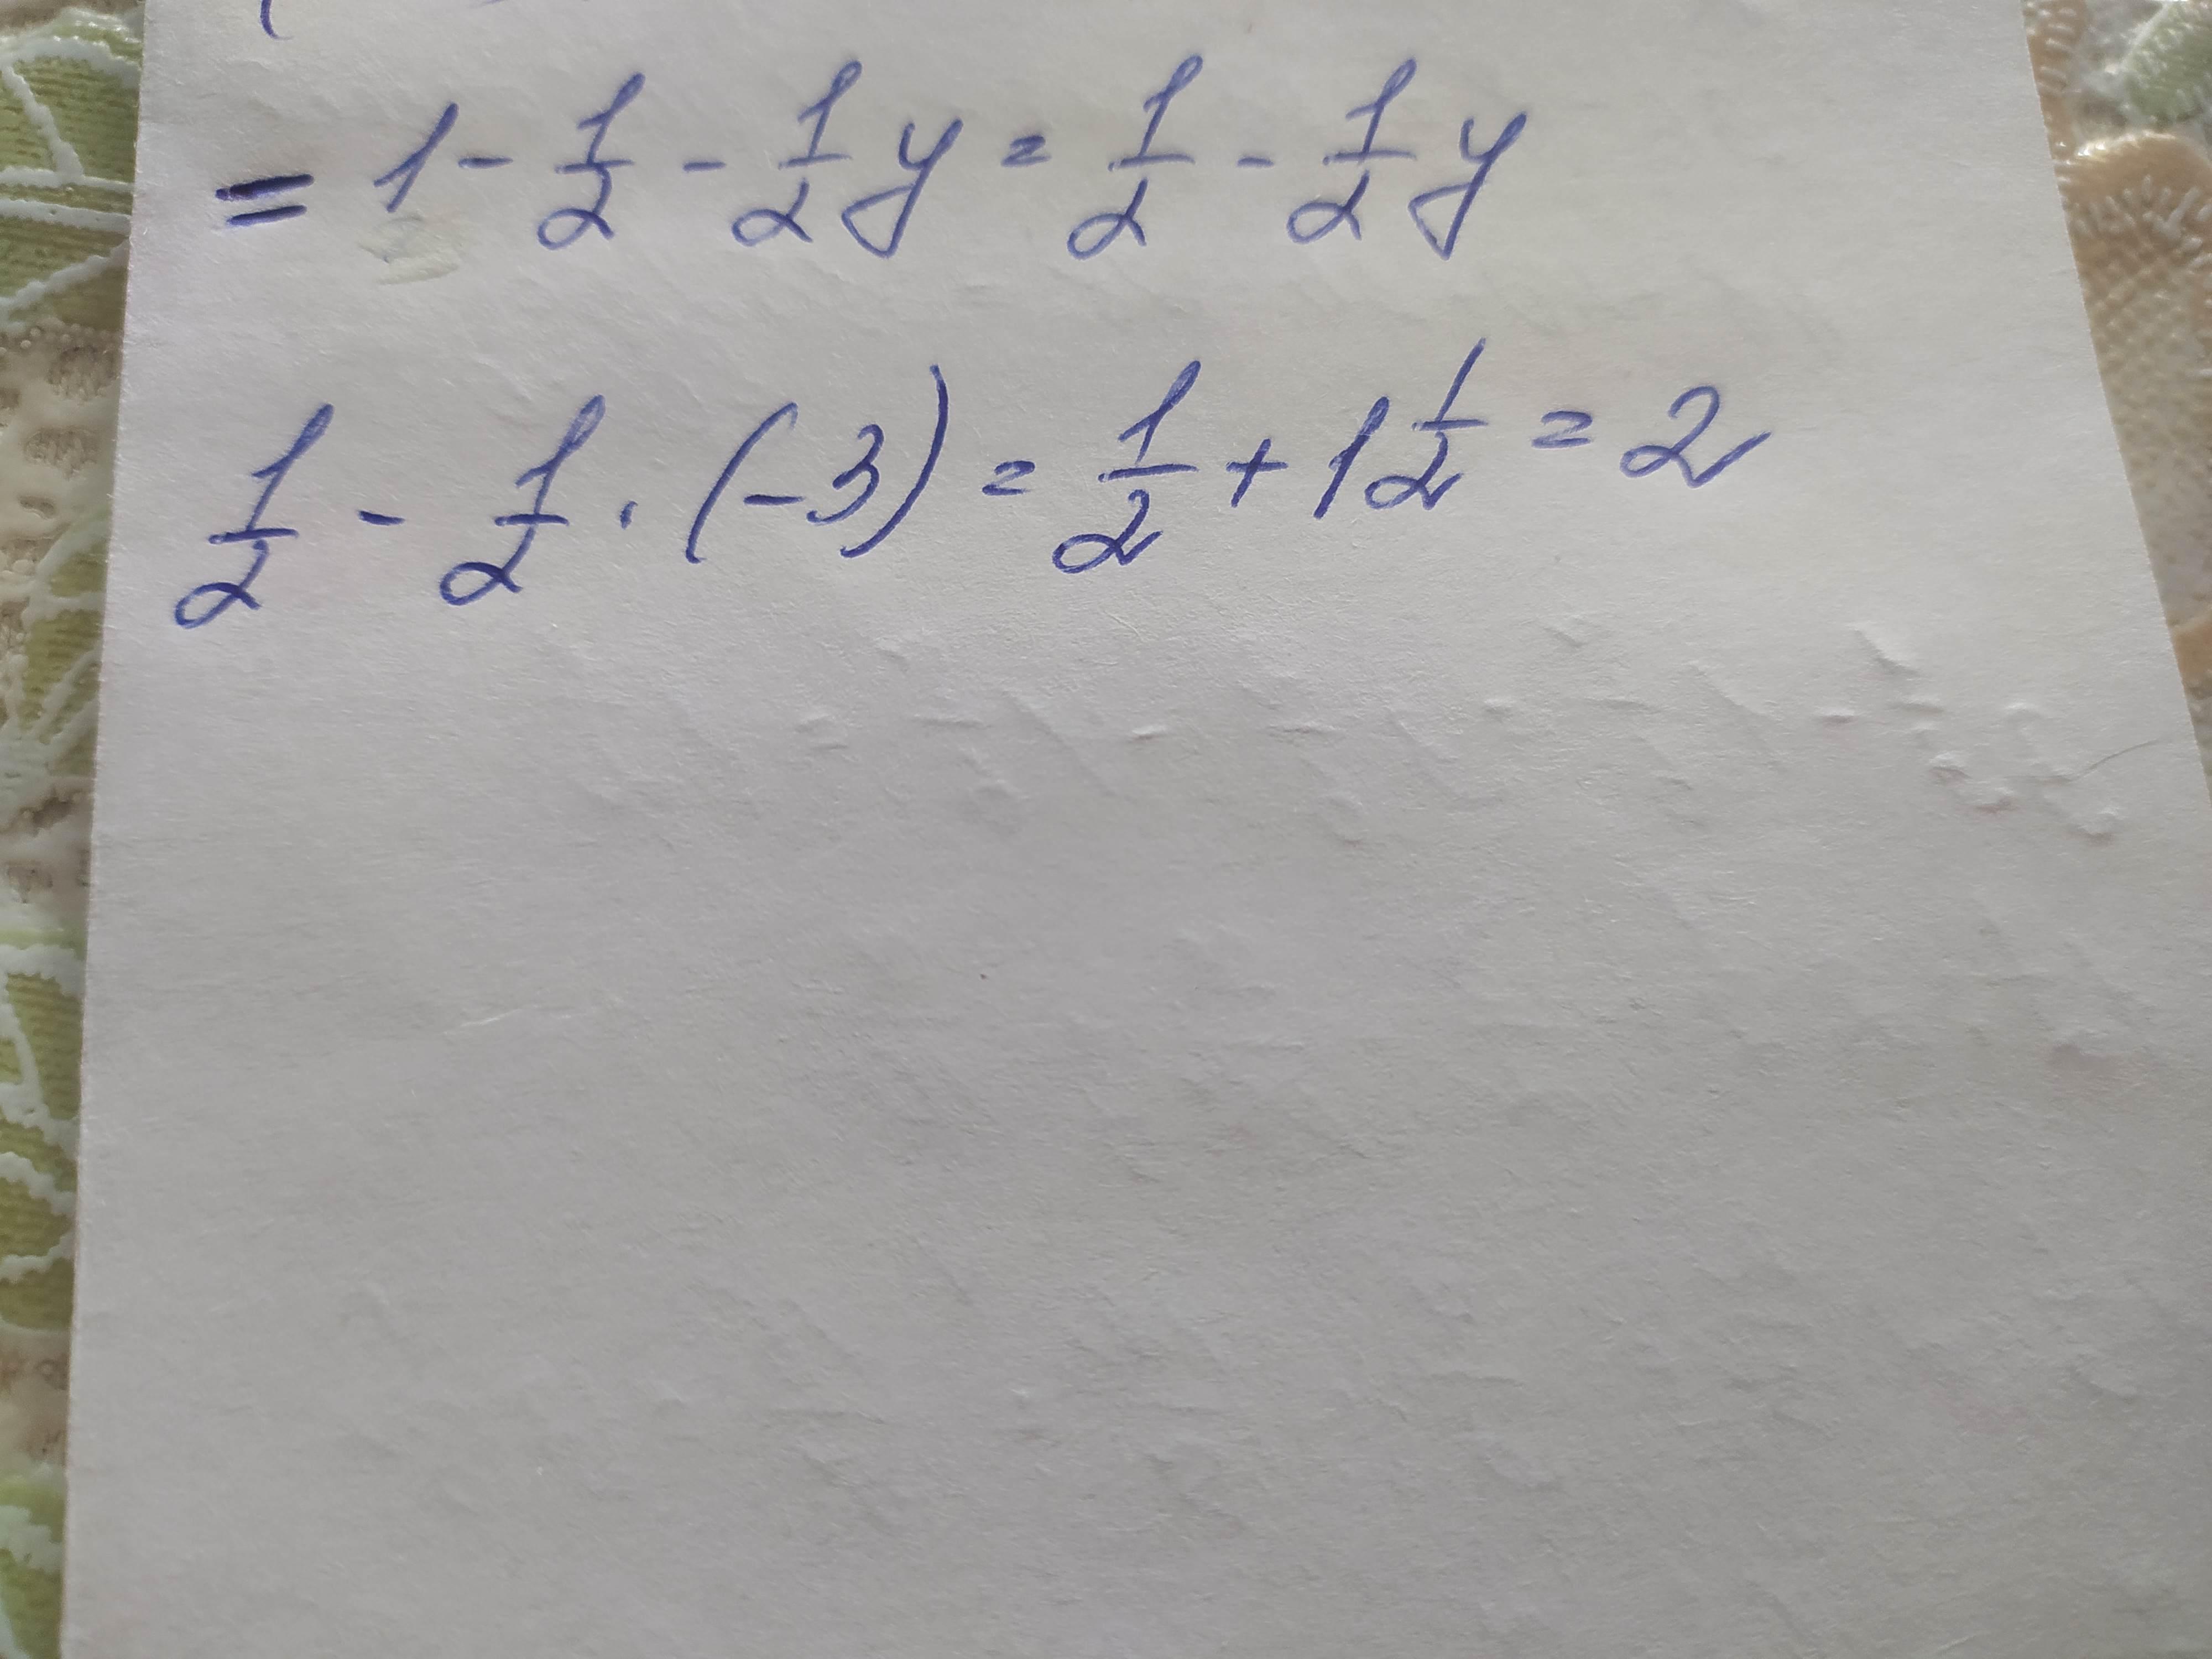 = 1 - 1/2 - 1/2 y = 1/2 - 1/2 y
1/2 - 1/2 · (-3) = 1/2 + 1 1/2 = 2